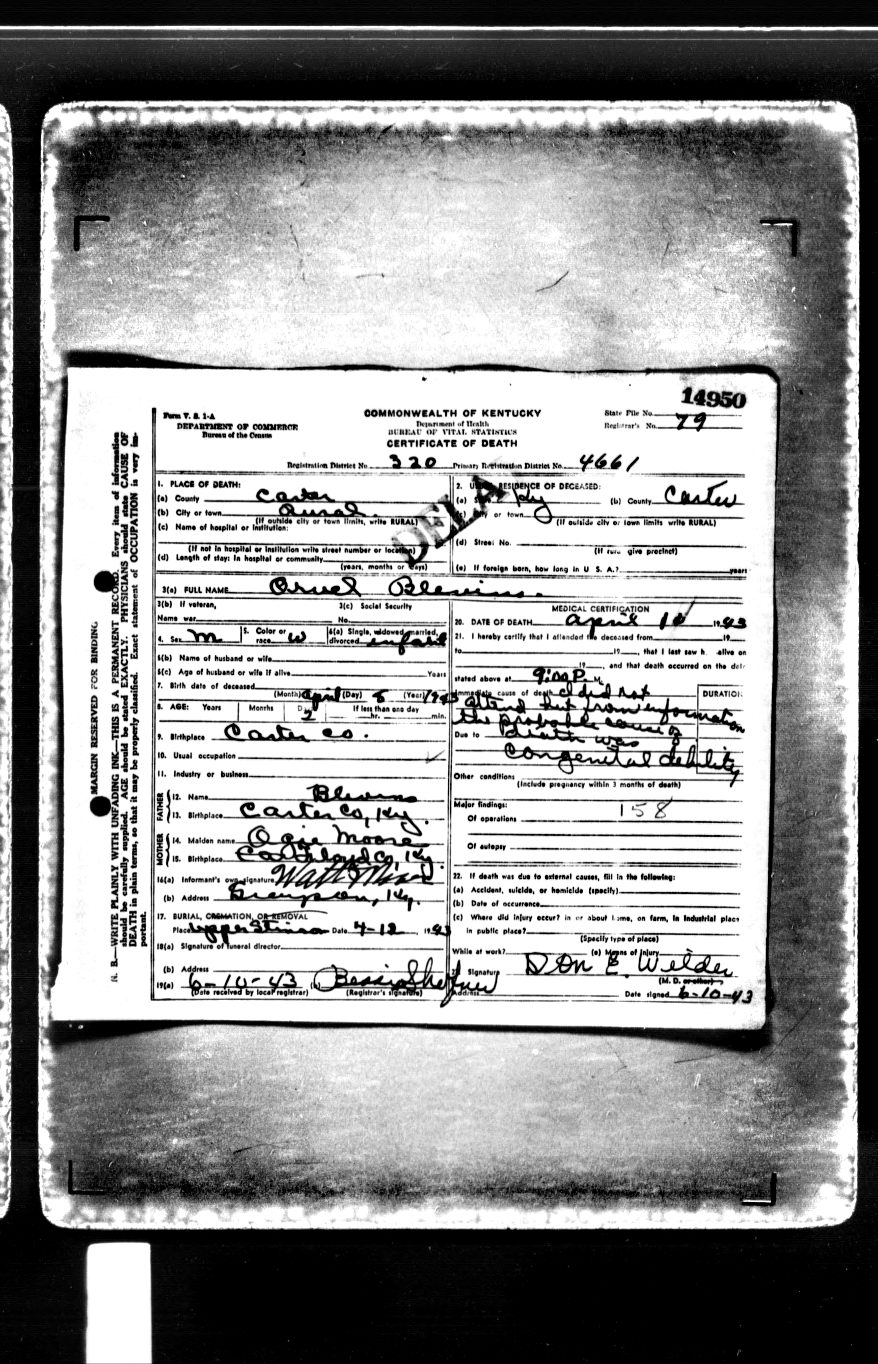 14950
Form V. S. 1-A
DEPARTMENT OF COMMERCE
Bureau of the Census
COMMONWEALTH OF KENTUCKY
Department of Health
BUREAU OF VITAL STATISTICS
CERTIFICATE OF DEATH
State File No.
Registrar's No. 79
Registration District No. 320 Primary Registration District No. 4661
MARGIN RESERVED FOR BINDING
N. B.—WRITE PLAINLY WITH UNFADING INK—THIS IS A PERMANENT RECORD. Every item of information
should be carefully supplied. AGE should be stated EXACTLY. PHYSICIANS should state CAUSE OF
DEATH in plain terms, so that it may be properly classified. Exact statement of OCCUPATION is very im-
portant.
1. PLACE OF DEATH:
(a) County Carter
(b) City or town Rural.
(If outside city or town limits, write RURAL)
(c) Name of hospital or institution:
(If not in hospital or institution write street number or location)
(d) Length of stay: In hospital or community
(years, months or days)
2. RESIDENCE OF DECEASED:
(a) Ky (b) County Carter
(c) City or town
(If outside city or town limits write RURAL)
(d) Street No.
(If rural give precinct)
(e) If foreign born, how long in U. S. A.? years
DELA
3(a) FULL NAME Orvel Blevins.
3(b) If veteran,
Name war
3(c) Social Security
No.
4. Sex M 5. Color or race W 6(a) Single, widowed, married, divorced infant
6(b) Name of husband or wife
6(c) Age of husband or wife if alive Years
7. Birth date of deceased (Month) April (Day) 8 (Year) 1943
8. AGE: Years Months Days If less than one day
2 hr. min.
9. Birthplace Carter Co.
10. Usual occupation
11. Industry or business
FATHER
12. Name Blevins
13. Birthplace Carter Co, Ky.
MOTHER
14. Maiden name Ogie Moore
15. Birthplace Co, Ky.
16(a) Informant's own signature
(b) Address Grayson, Ky.
17. BURIAL, CREMATION, OR REMOVAL
Place Upper Stinson Date 4-12, 1943
18(a) Signature of funeral director
(b) Address
19(a) 6-10-43 (b) Bessie
(Date received by local registrar) (Registrar's signature)
MEDICAL CERTIFICATION
20. DATE OF DEATH April 10 1943
21. I hereby certify that I attended the deceased from 19
to 19, that I last saw h alive on
19, and that death occurred on the date
stated above at 9:00 P. M.
Immediate cause of death I did not
DURATION
attend but from information
the probable cause of
Due to Death was
Congenital debility
Other conditions
(Include pregnancy within 3 months of death)
Major findings: 158
Of operations
Of autopsy
22. If death was due to external causes, fill in the following:
(a) Accident, suicide, or homicide (specify)
(b) Date of occurrence
(c) Where did injury occur? in or about home, on farm, in industrial place
in public place?
(Specify type of place)
While at work? (e) Means of injury
Signature Don E. Wilder
(M. D. or other)
Address Date signed 6-10-43